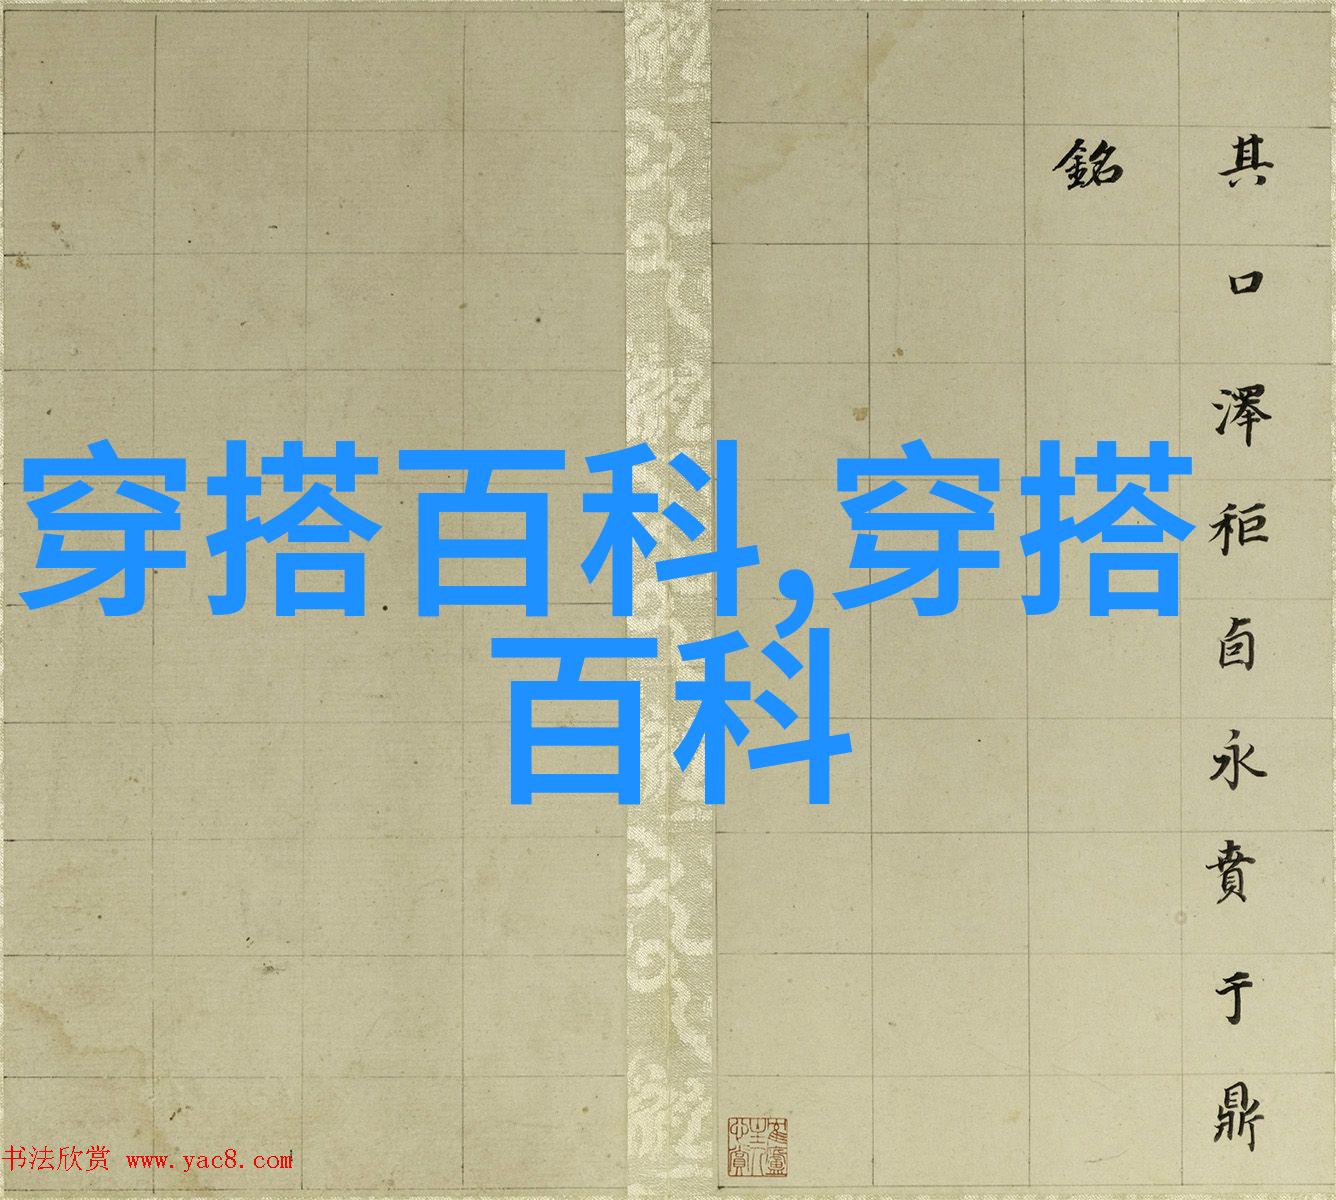 其口澤秬卣永賁于鼎
銘
穿搭百科,穿搭
百科
书法欣赏 www.yac8.com